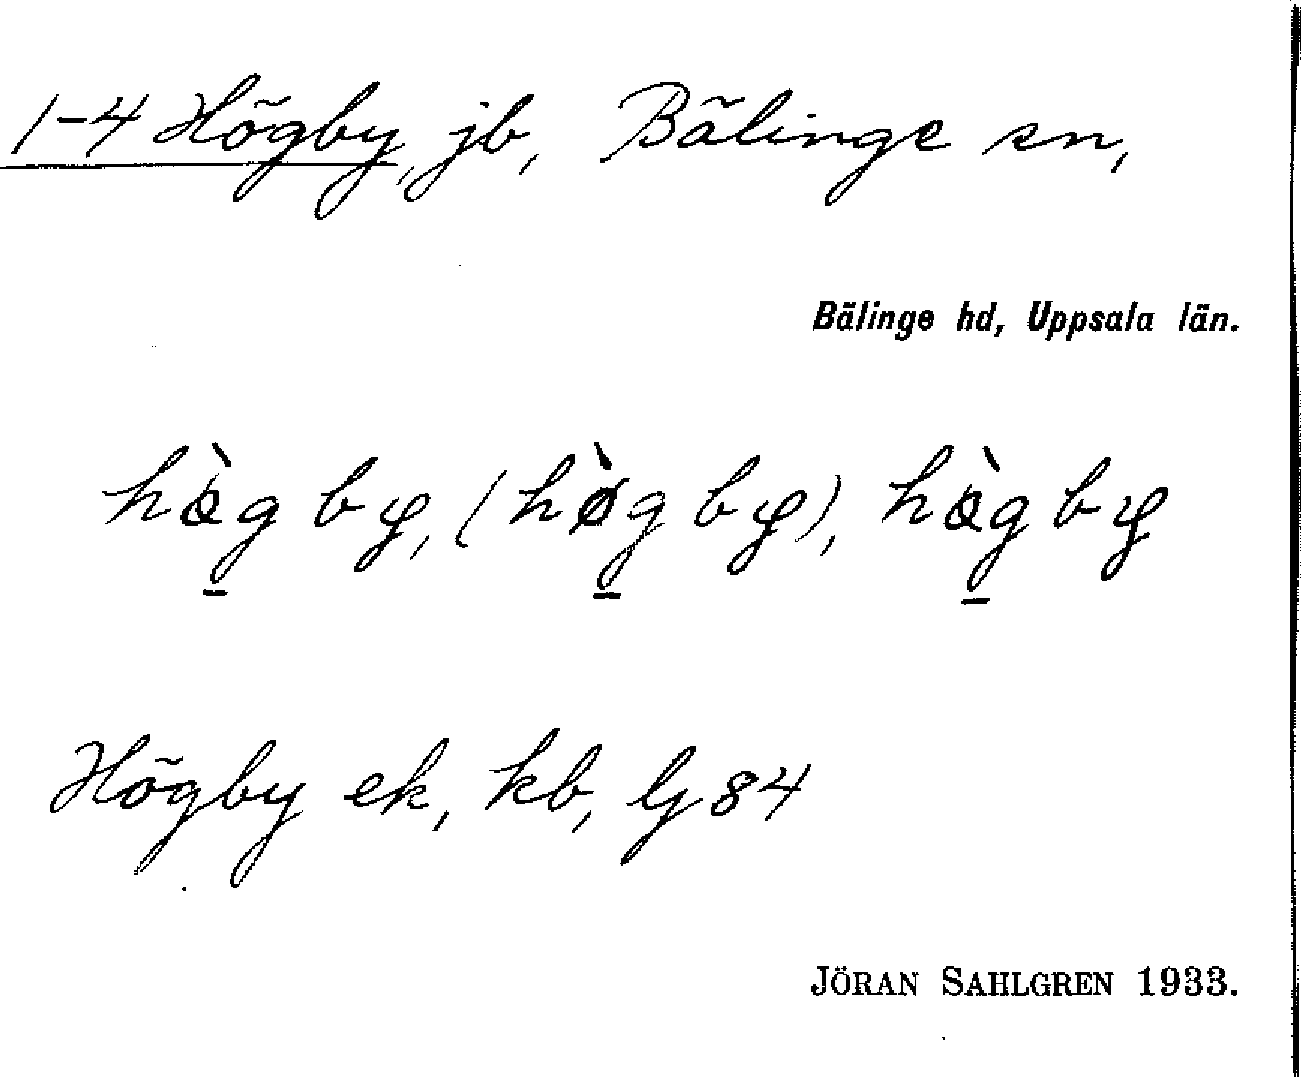 1-4 Högby, jb, Bälinge sn,
Bälinge hd, Uppsala län.
Högby ek, kb, Lj 84
JÖRAN SAHLGREN 1933.